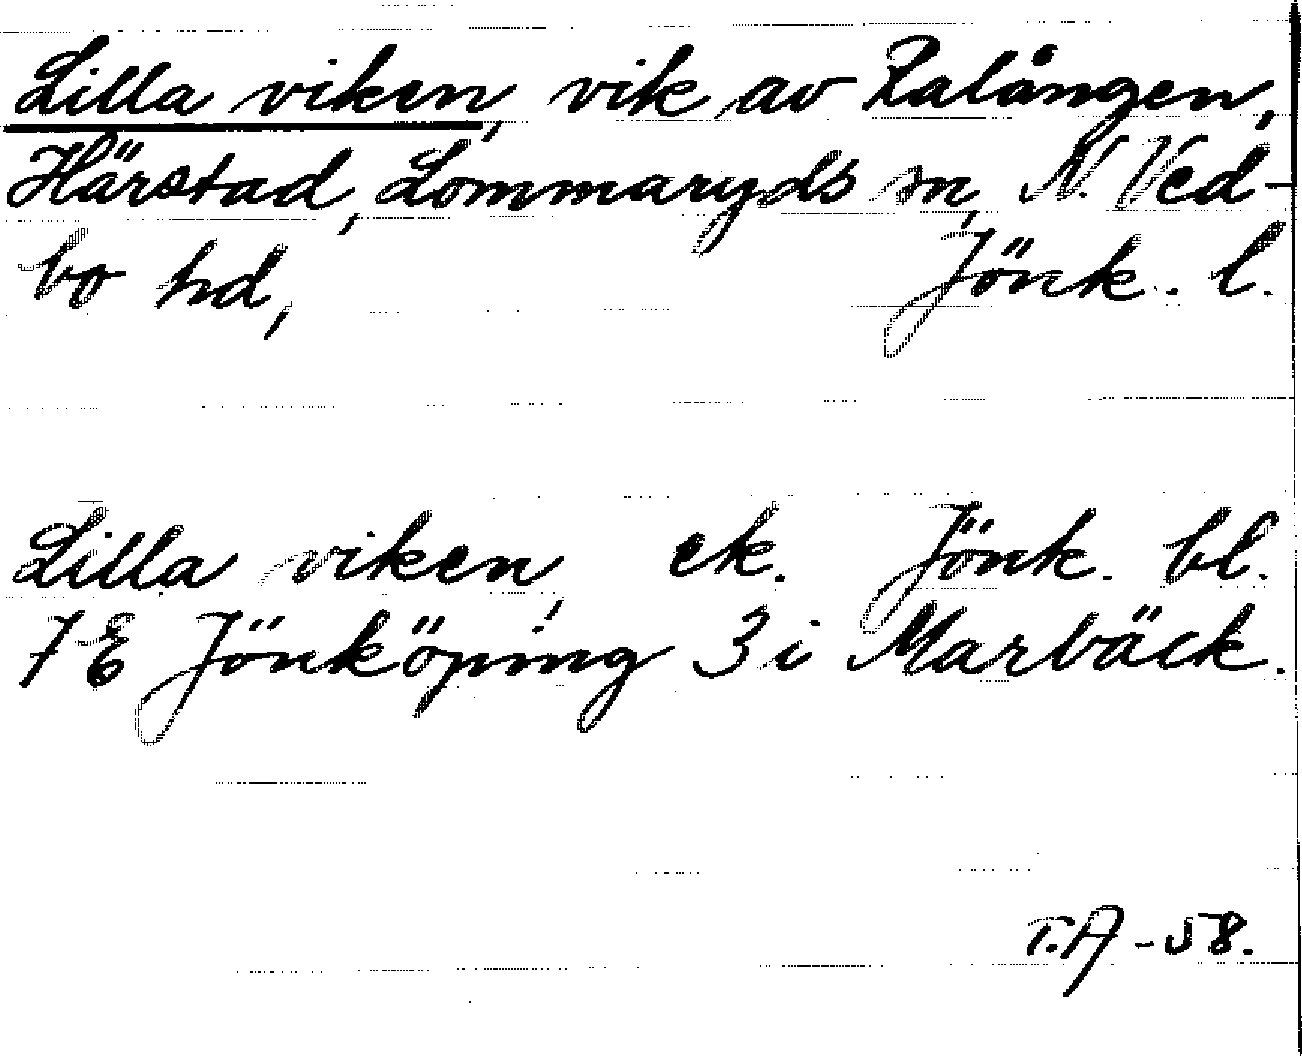 Lilla viken, vik av Ralången,
Härstad, Lommaryds sn, N. Ved-
bo hd, Jönk. l.
Lilla viken, ek. Jönk. bl.
7 E Jönköping 3 i Marbäck.
T.A -58.